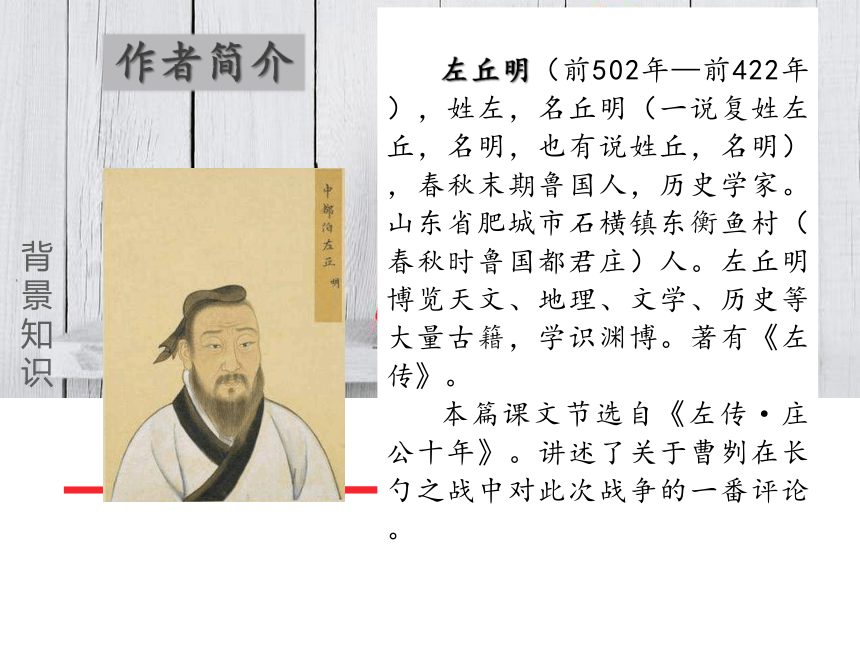 作者简介
背景知识
中都伯左丘明
左丘明（前502年—前422年
），姓左，名丘明（一说复姓左
丘，名明，也有说姓丘，名明）
，春秋末期鲁国人，历史学家。
山东省肥城市石横镇东衡鱼村（
春秋时鲁国都君庄）人。左丘明
博览天文、地理、文学、历史等
大量古籍，学识渊博。著有《左
传》。
本篇课文节选自《左传·庄
公十年》。讲述了关于曹刿在长
勺之战中对此次战争的一番评论
。